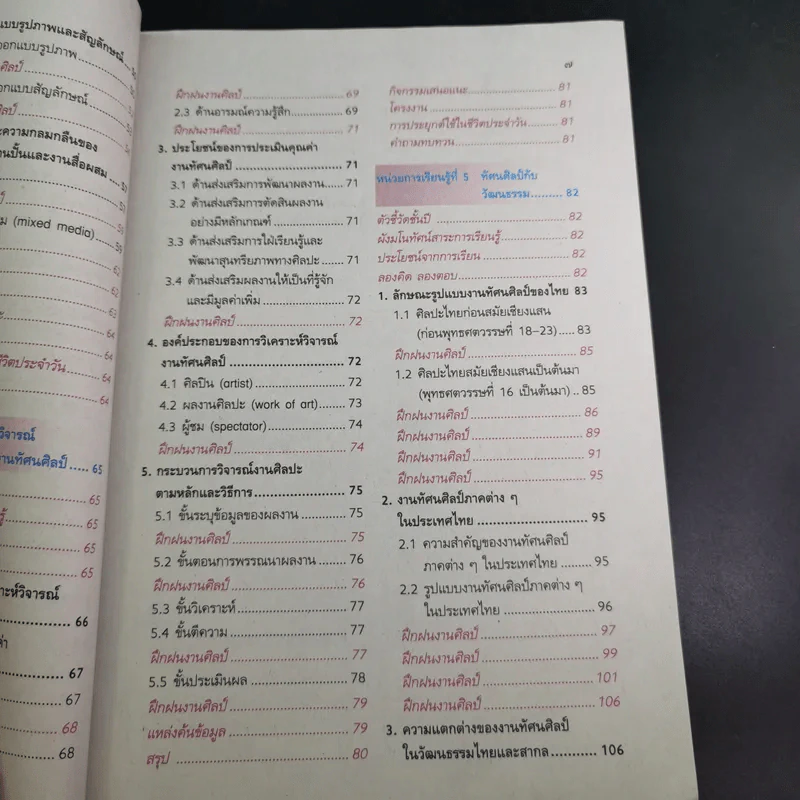 แบบรูปภาพและสัญลักษณ์
ออกแบบรูปภาพ
ศิลป์
ออกแบบสัญลักษณ์
ศิลป์
ะความกลมกลืนของ
านปั้นและงานสื่อผสม
ม (mixed media)
62
62
62
64
64
ชีวิตประจำวัน
64
วิจารณ์
งานทัศนศิลป์ ..... 65
65
รู้ 65
65
65
ราะห์วิจารณ์
66
ค่า
67
67
68
68
๗
ฝึกฝนงานศิลป์ 69
2.3 ด้านอารมณ์ความรู้สึก 69
ฝึกฝนงานศิลป์ 71
3. ประโยชน์ของการประเมินคุณค่า
งานทัศนศิลป์ 71
3.1 ด้านส่งเสริมการพัฒนาผลงาน 71
3.2 ด้านส่งเสริมการตัดสินผลงาน
อย่างมีหลักเกณฑ์ 71
3.3 ด้านส่งเสริมการใฝ่เรียนรู้และ
พัฒนาสุนทรียภาพทางศิลปะ 71
3.4 ด้านส่งเสริมผลงานให้เป็นที่รู้จัก
และมีมูลค่าเพิ่ม 72
ฝึกฝนงานศิลป์ 72
4. องค์ประกอบของการวิเคราะห์วิจารณ์
งานทัศนศิลป์ 72
4.1 ศิลปิน (artist) 72
4.2 ผลงานศิลปะ (work of art) 73
4.3 ผู้ชม (spectator) 74
ฝึกฝนงานศิลป์ 74
5. กระบวนการวิจารณ์งานศิลปะ
ตามหลักและวิธีการ 75
5.1 ขั้นระบุข้อมูลของผลงาน 75
ฝึกฝนงานศิลป์ 75
5.2 ขั้นตอนการพรรณนาผลงาน 76
ฝึกฝนงานศิลป์ 76
5.3 ขั้นวิเคราะห์ 77
5.4 ขั้นตีความ 77
ฝึกฝนงานศิลป์ 77
5.5 ขั้นประเมินผล 78
ฝึกฝนงานศิลป์ 79
แหล่งค้นข้อมูล 79
สรุป 80
กิจกรรมเสนอแนะ 81
โครงงาน 81
การประยุกต์ใช้ในชีวิตประจำวัน 81
คำถามทบทวน 81
หน่วยการเรียนรู้ที่ 5 ทัศนศิลป์กับ
วัฒนธรรม 82
ตัวชี้วัดชั้นปี 82
ผังมโนทัศน์สาระการเรียนรู้ 82
ประโยชน์จากการเรียน 82
ลองคิด ลองตอบ 82
1. ลักษณะรูปแบบงานทัศนศิลป์ของไทย 83
1.1 ศิลปะไทยก่อนสมัยเชียงแสน
(ก่อนพุทธศตวรรษที่ 18–23) 83
ฝึกฝนงานศิลป์ 85
1.2 ศิลปะไทยสมัยเชียงแสนเป็นต้นมา
(พุทธศตวรรษที่ 16 เป็นต้นมา) .. 85
ฝึกฝนงานศิลป์ 86
ฝึกฝนงานศิลป์ 89
ฝึกฝนงานศิลป์ 91
ฝึกฝนงานศิลป์ 95
2. งานทัศนศิลป์ภาคต่าง ๆ
ในประเทศไทย 95
2.1 ความสำคัญของงานทัศนศิลป์
ภาคต่าง ๆ ในประเทศไทย 95
2.2 รูปแบบงานทัศนศิลป์ภาคต่าง ๆ
ในประเทศไทย 96
ฝึกฝนงานศิลป์ 97
ฝึกฝนงานศิลป์ 99
ฝึกฝนงานศิลป์ 101
ฝึกฝนงานศิลป์ 106
3. ความแตกต่างของงานทัศนศิลป์
ในวัฒนธรรมไทยและสากล 106